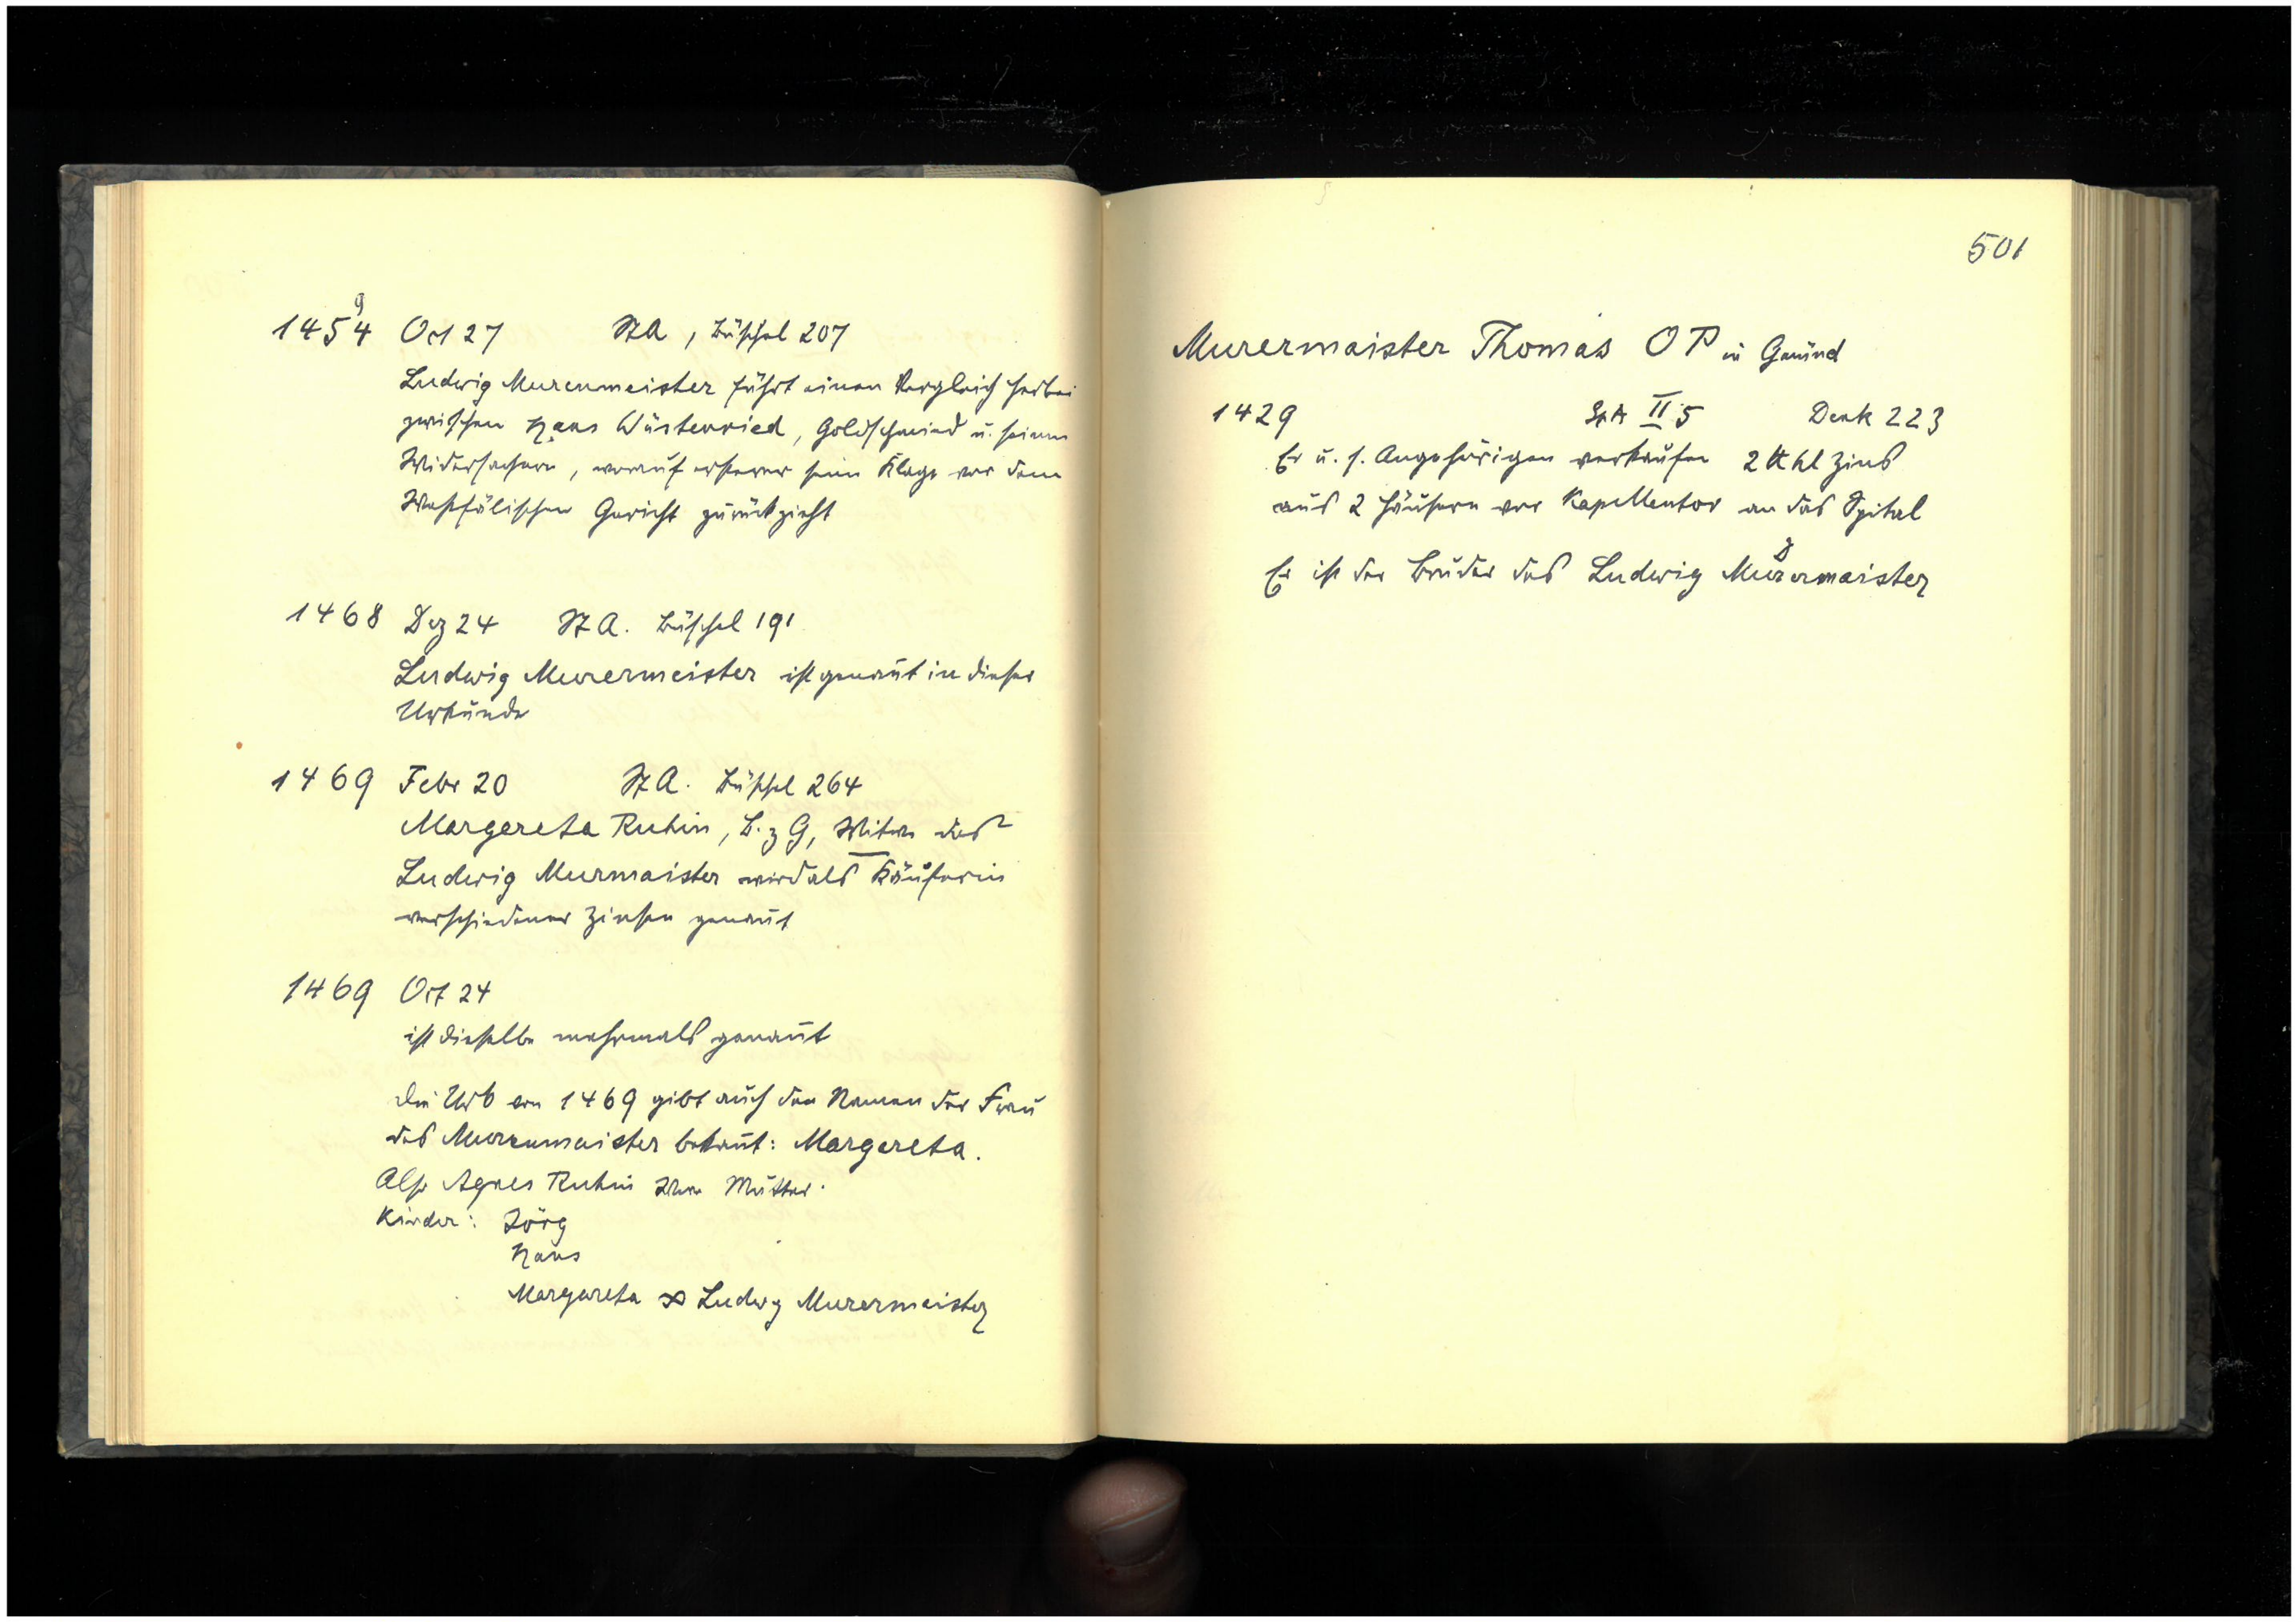 1454 Oct 27 StA, Büschel 207
9
Ludwig Murermeister führt einen Vergleich herbei
zwischen Hans Wüstenried, Goldschmied u. seinen
Widersachern, worauf ersterer seine Klage vor dem
Westfälischen Gericht zurückzieht
1468 Dez 24 StA. Büschel 191
Ludwig Murermeister ist genannt in dieser
Urkunde
1469 Febr 20 StA. Büschel 264
Margereta Ruhin, B. z G, Witwe des
Ludwig Murmaister wird als Käuferin
verschiedener Zinsen genannt
1469 Oct 24
ist dieselbe mehrmals genannt
Die Urk von 1469 gibt auch den Namen der Frau
des Murermaister bekannt: Margereta.
Also Agnes Ruhin Mutter.
Kinder: Jörg
Hans
Margareta ∞ Ludwig Murermeister
501
Murermaister Thomas OP in Gmünd
1429 SpA II 5 Denk 223
Er u. s. Angehörigen verkaufen 2 ℔ hl Zins
aus 2 Häusern vor Kapellentor an das Spital
Er ist der Bruder des Ludwig Murermaister